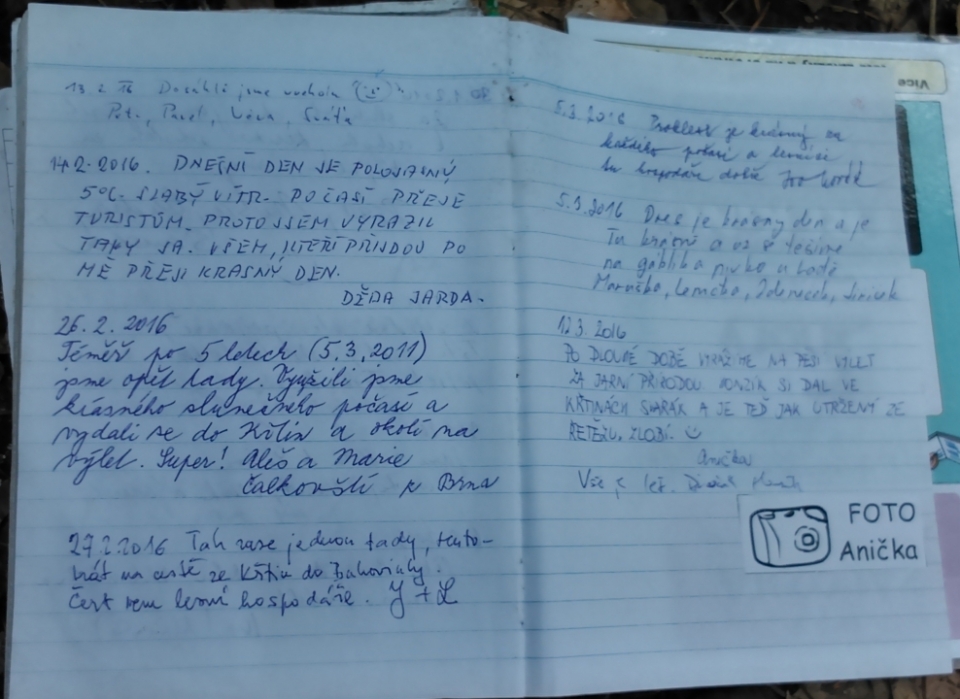 13 2 16 Dosáhli jsme vrcholu
Petr, Pavel, Věra, Sváťa
14.2.2016. DNEŠNÍ DEN JE POLOJASNÝ
5°C. SLABÝ VÍTR. POČASÍ PŘEJE
TURISTŮM. PROTO JSEM VYRAZIL
TAKY JÁ. VŠEM, KTEŘÍ PŘIJDOU PO
MĚ PŘEJI KRASNÝ DEN.
DĚDA JARDA.
26.2.2016
Téměř po 5 letech (5.3.2011)
jsme opět tady. Využili jsme
krásného slunečného počasí a
vydali se do Křtin a okolí na
výlet. Super! Aleš a Marie
Čalkovští z Brna
27.2.2016 Tak zase jednou tady, tento-
krát na cestě ze Křtin do Bukovinky.
Čest všem lesní hospodáře. J + L
5.3.2016 je krásný za
každého počasí a
hospodáře dobře
5.3.2016 Dnes je krasny den a je
Tu krásně a uz se tesime
na gáblíka pivko u
Maruška, Lenička, Zdeneček, Jiricek
12.3.2016
PO DLOUHÉ DOBĚ VYRÁŽÍME NA PĚŠÍ VÝLET
ZA JARNÍ PŘÍRODOU. HONZÍK SI DAL VE
KŘTINÁCH SVAŘÁK A JE TEĎ JAK UTRŽENÝ ZE
ŘETĚZU. ZLOBÍ. ☺
Anička
FOTO
Anička
Více